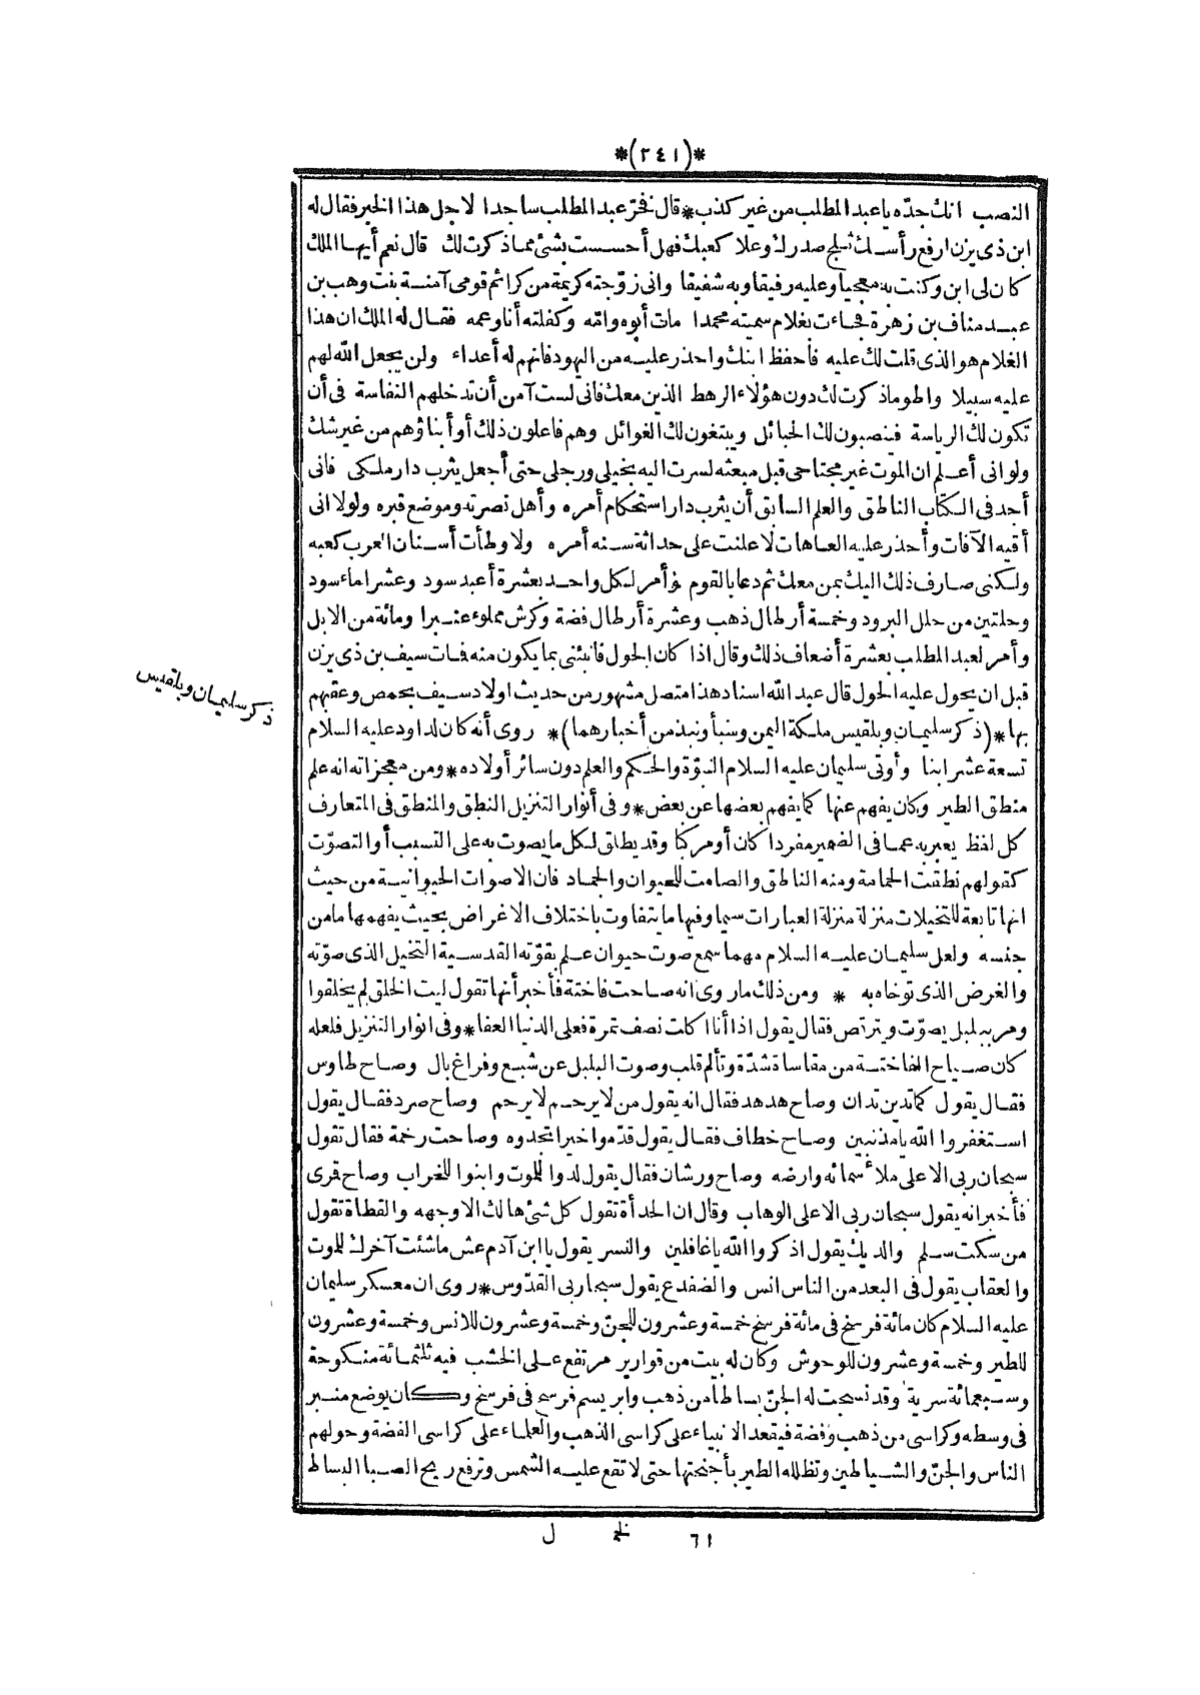 *(٢٤١)*
النصب انك جدّه يا عبد المطلب من غير كذب*قال فخرّ عبد المطلب ساجدا لاجل هذا الخبر فقال له
ابن ذى يزن ارفع رأسك ثلج صدرك وعلا كعبك فهل أحسست بشئ مما ذكرت لك قال نعم أيها الملك
كان لى ابن وكنت به معجبا وعليه رفيقا وبه شفيقا وانى زوّجته كريمة من كرائم قومى آمنة بنت وهب بن
عبد مناف بن زهرة فجاءت بغلام سميته محمدا مات أبوه وامّه وكفلته أنا وعمه فقال له الملك ان هذا
الغلام هو الذى قلت لك عليه فأحفظ ابنك واحذر عليه من اليهود فانهم له أعداء ولن يجعل الله لهم
عليه سبيلا واطو ما ذكرت لك دون هؤلاء الرهط الذين معك فانى لست آمن أن تدخلهم النفاسة فى أن
تكون لك الرياسة فينصبون لك الحبائل ويبتغون لك الغوائل وهم فاعلون ذلك أو أبناؤهم من غير شك
ولو انى أعلم ان الموت غير مجتاحى قبل مبعثه لسرت اليه بخيلى ورجلى حتى أجعل يثرب دار ملكى فانى
أجد فى الكتاب الناطق والعلم السابق أن يثرب دار استحكام أمره وأهل نصرته وموضع قبره ولولا انى
أقيه الآفات وأحذر عليه العاهات لاعلنت على حداثة سنه أمره ولاوطأت أسنان العرب كعبه
ولكنى صارف ذلك اليك بمن معك ثم دعا بالقوم فأمر لكل واحد بعشرة أعبد سود وعشر اماء سود
وحلتين من حلل البرود وخمسة أرطال ذهب وعشرة أرطال فضة وكرش مملوء عنبرا ومائة من الابل
وأمر لعبد المطلب بعشرة أضعاف ذلك وقال اذا كان الحول فانبئنى بما يكون منه فمات سيف بن ذى يزن
قبل ان يحول عليه الحول قال عبد الله اسناد هذا متصل مشهور من حديث اولاد سيف بحمص وعقبهم
بها*(ذكر سليمان وبلقيس ملكة اليمن وسبأ ونبذ من أخبارهما)* روى أنه كان لداود عليه السلام
ذكر سليمان وبلقيس
تسعة عشر ابنا وأوتى سليمان عليه السلام النبوّة والحكم والعلم دون سائر أولاده*ومن معجزاته انه علم
منطق الطير وكان يفهم عنها كما يفهم بعضها عن بعض*وفى أنوار التنزيل النطق والمنطق فى المتعارف
كل لفظ يعبر به عما فى الضمير مفردا كان أو مركبا وقد يطلق لكل ما يصوت به على التسبب أو التصوّت
كقولهم نطقت الحمامة ومنه الناطق والصامت للحيوان والجماد فان الاصوات الحيوانية من حيث
انها تابعة للتخيلات منزلة منزلة العبارات سيما وفيها ما يتفاوت باختلاف الاغراض بحيث يفهمها ما من
جنسه ولعل سليمان عليه السلام مهما سمع صوت حيوان علم بقوّته القدسية التخيل الذى صوّته
والغرض الذى توخاه به * ومن ذلك ما روى انه صاحت فاختة فأخبر أنها تقول ليت الخلق لم يخلقوا
ومر ببلبل يصوّت ويترقص فقال يقول اذا أنا اكلت نصف تمرة فعلى الدنيا العفا*وفى انوار التنزيل فلعله
كان صياح الفاختة من مقاساة شدّة وتألم قلب وصوت البلبل عن شبع وفراغ بال وصاح طاوس
فقال يقول كما تدين تدان وصاح هدهد فقال انه يقول من لا يرحم لا يرحم وصاح صرد فقال يقول
استغفروا الله يا مذنبين وصاح خطاف فقال يقول قدّموا خيرا تجدوه وصاحت رخمة فقال تقول
سبحان ربى الاعلى ملأ سمائه وارضه وصاح ورشان فقال يقول لدوا للموت وابنوا للخراب وصاح قمرى
فأخبر انه يقول سبحان ربى الاعلى الوهاب وقال ان الحدأة تقول كل شئ هالك الا وجهه والقطاة تقول
من سكت سلم والديك يقول اذكروا الله يا غافلين والنسر يقول يا ابن آدم عش ما شئت آخرك للموت
والعقاب يقول فى البعد من الناس انس والضفدع يقول سبحان ربى القدّوس*روى ان معسكر سليمان
عليه السلام كان مائة فرسخ فى مائة فرسخ خمسة وعشرون للجنّ وخمسة وعشرون للانس وخمسة وعشرون
للطير وخمسة وعشرون للوحوش وكان له بيت من قوارير مرتفع على الخشب فيه ثلثمائة منكوحة
وسبعمائة سرية وقد نسجت له الجنّ بساطا من ذهب وابريسم فرسخ فى فرسخ وكان يوضع منبر
فى وسطه وكراسى من ذهب وفضة فيقعد الانبياء على كراسى الذهب والعلماء على كراسى الفضة وحولهم
الناس والجنّ والشياطين وتظلله الطير بأجنحتها حتى لا تقع عليه الشمس وترفع ريح الصبا البساط
٦١ نخ ل